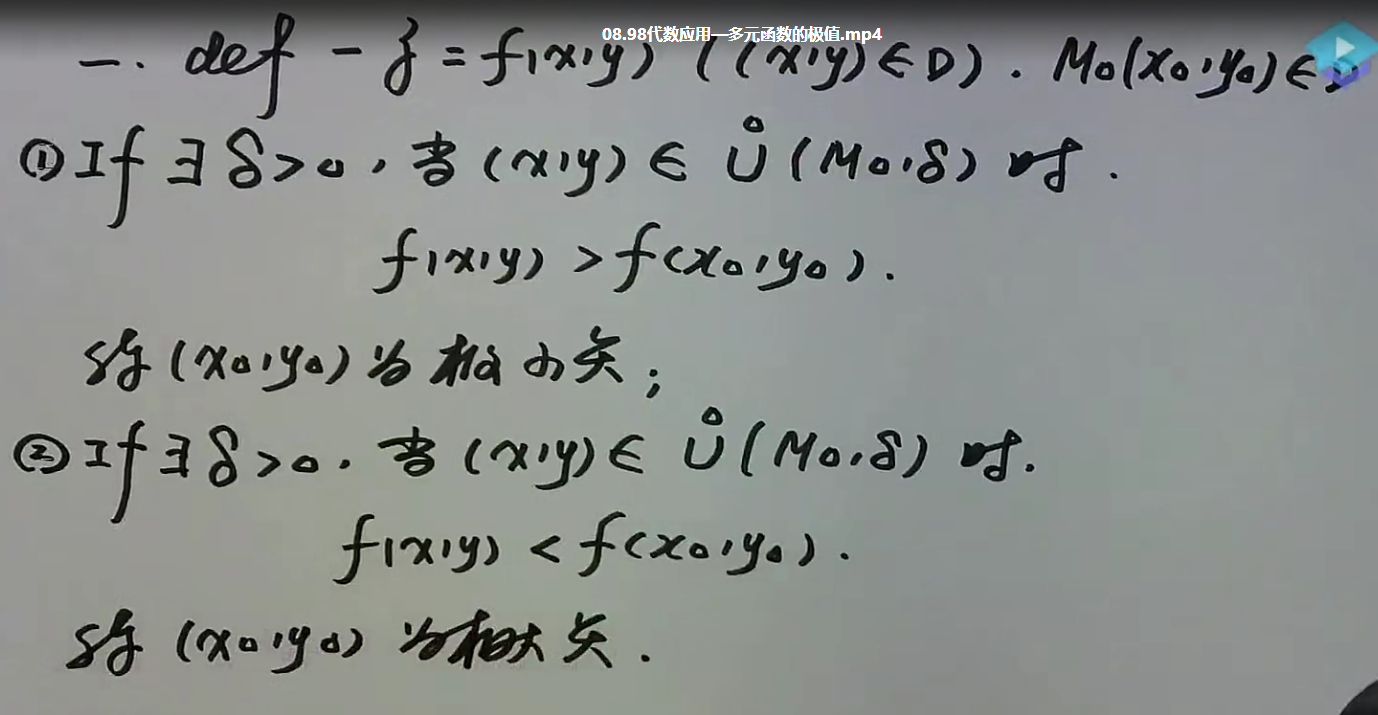 08.98代数应用—多元函数的极值.mp4
一. def - z = f(x,y) ((x,y)∈D). M₀(x₀,y₀)∈D
① If ∃ δ>0, 当(x,y)∈ Ů(M₀,δ)时.
f(x,y) > f(x₀,y₀).
称(x₀,y₀)为极小点;
② If ∃ δ>0. 当(x,y)∈ Ů(M₀,δ)时.
f(x,y) < f(x₀,y₀).
称(x₀,y₀)为极大点.